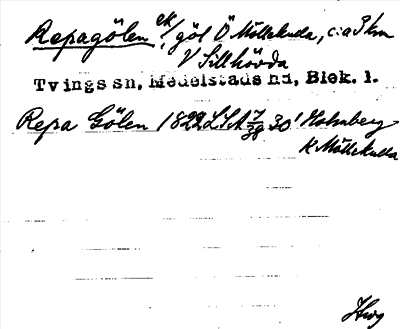 Repagölen ek, göl Ö Möllekulla, c:a 3 km
V Sillhövda
Tvings sn, Medelstads hd, Blek. l.
Repa Gölen 1822 LSA 7/38 30' Holmberg
K Möllekulla